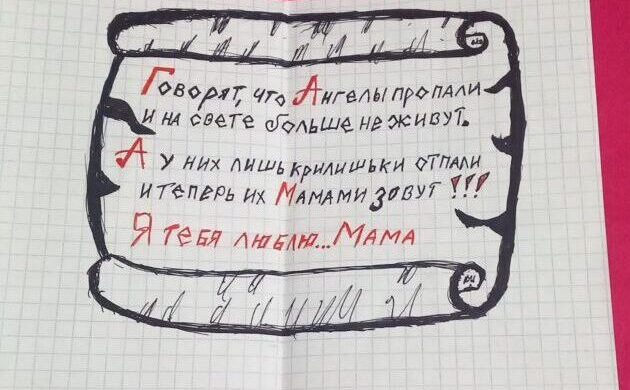 Говорят, что Ангелы пропали
и на свете больше не живут.
А у них лишь крилишьки отпали
и теперь их Мамами зовут!!!
Я тебя люблю... Мама